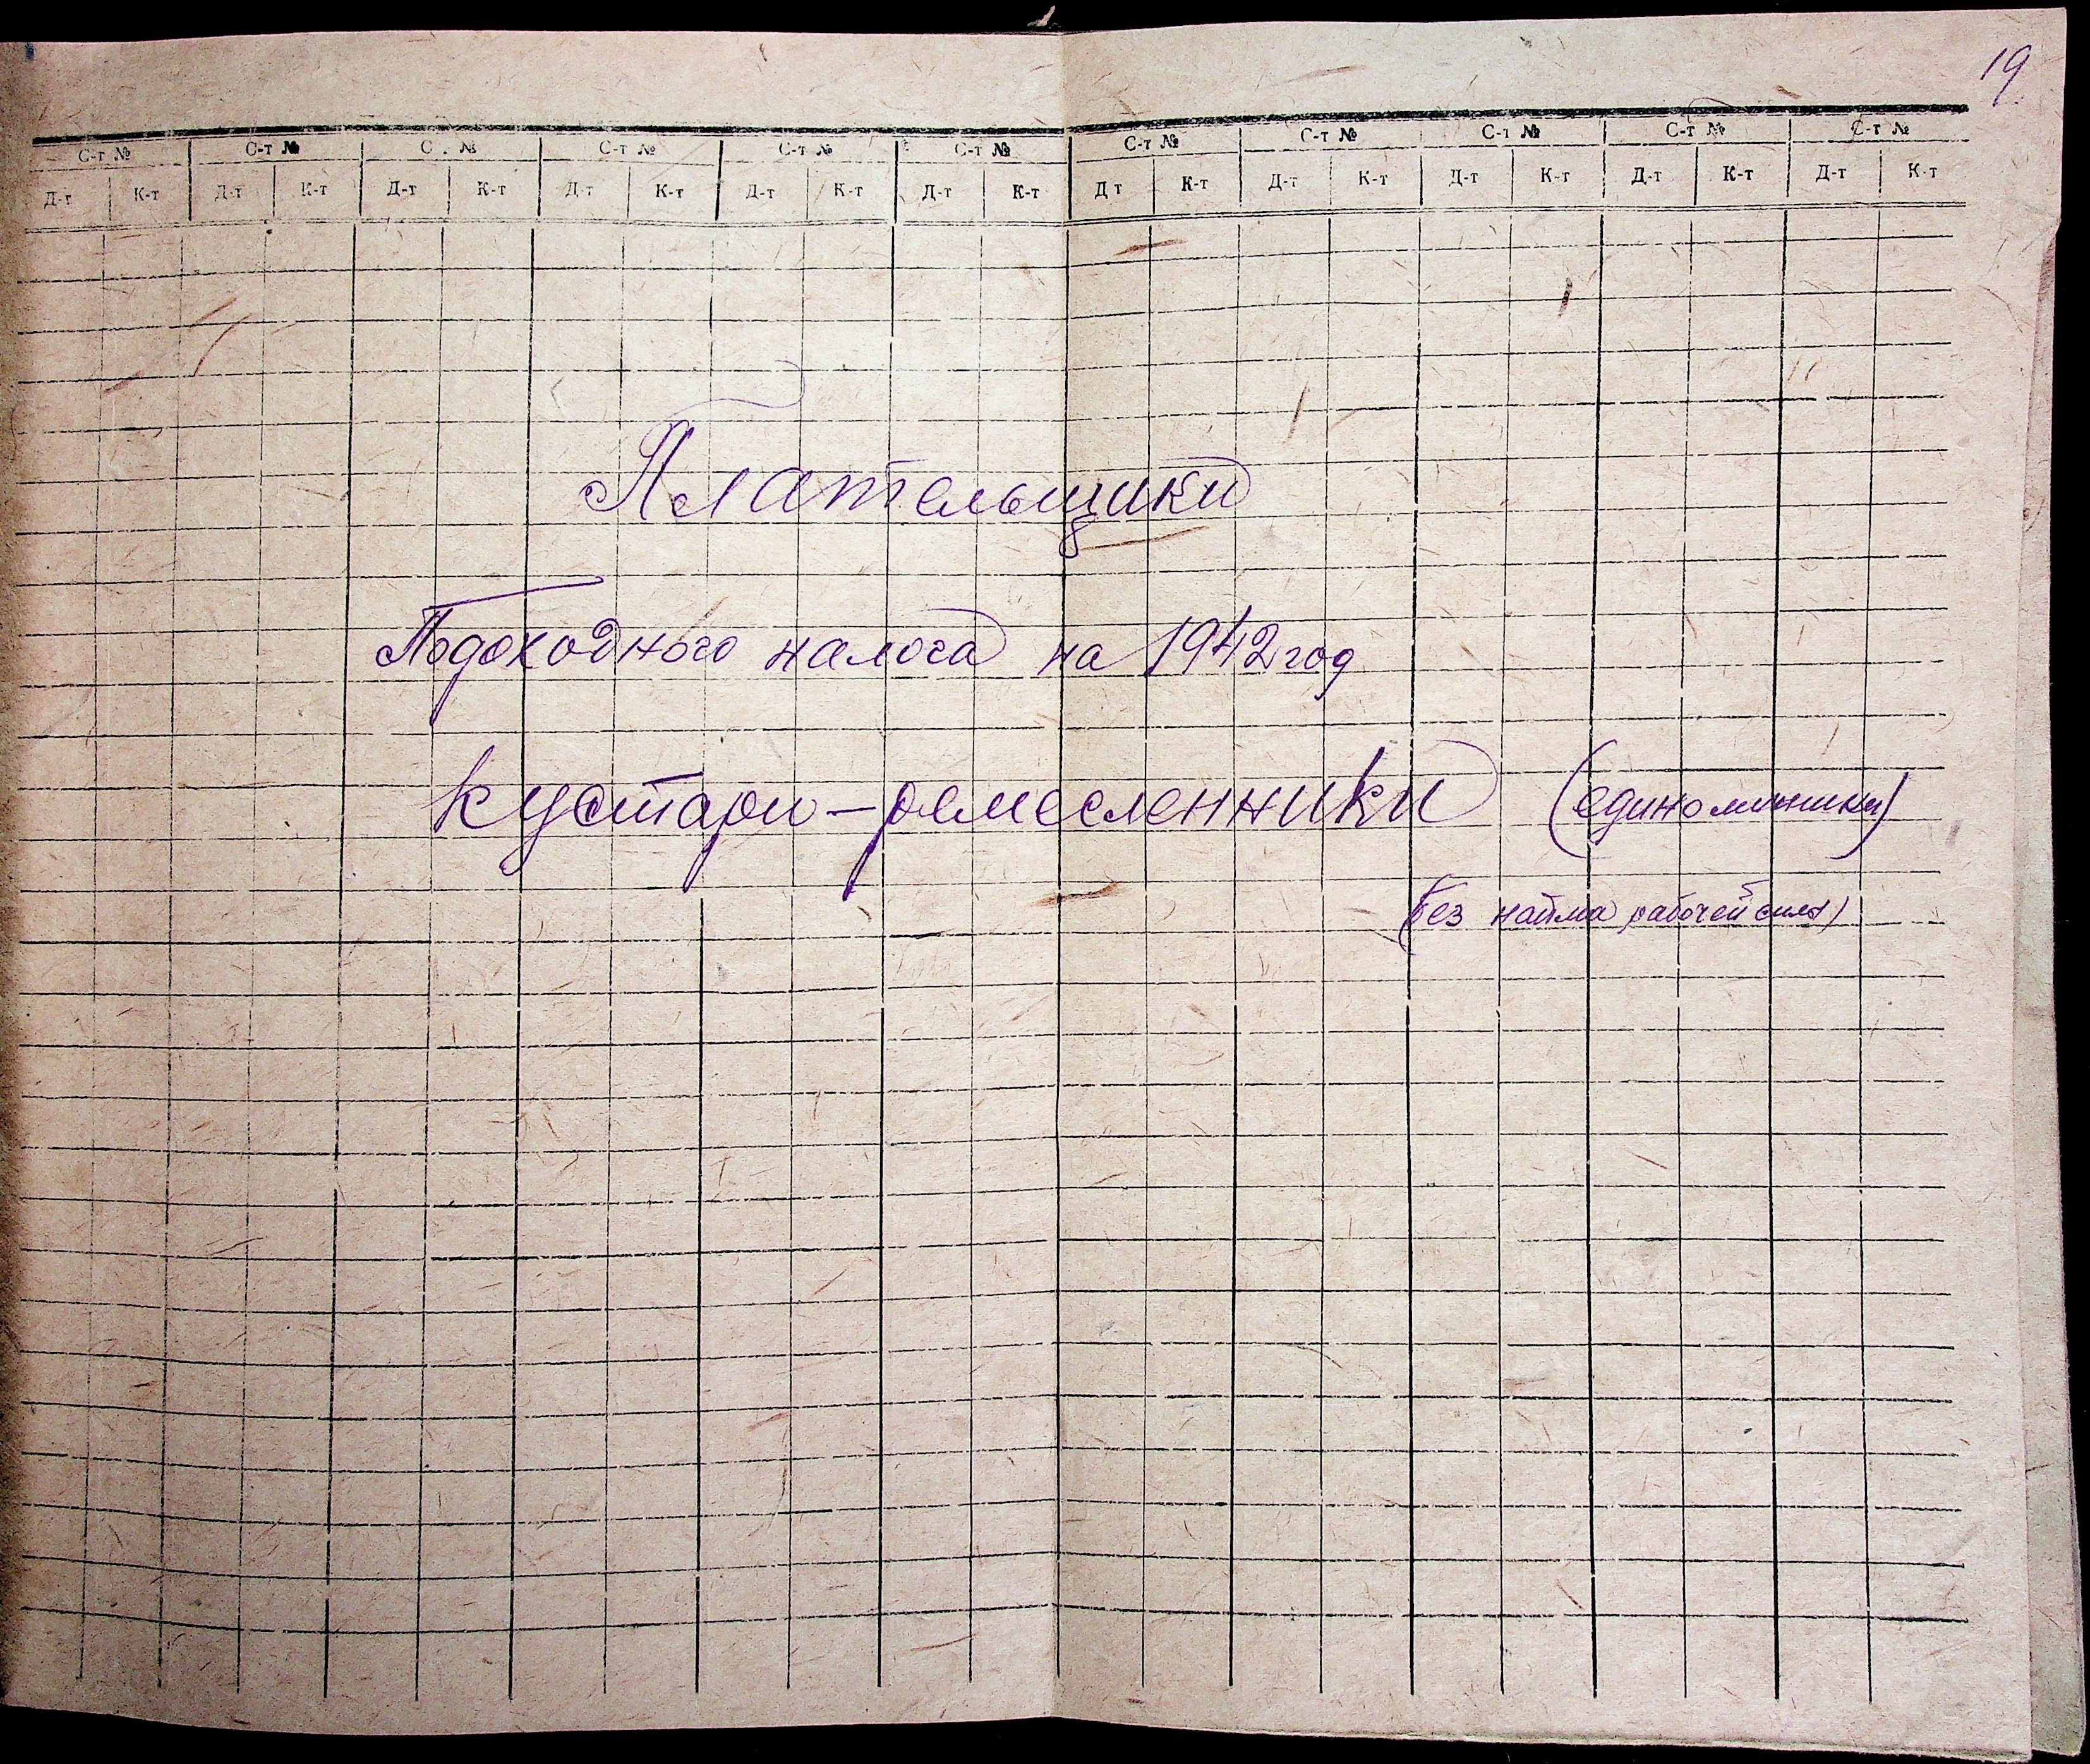 19
С-т № С-т № С . № С-т № С-т № С-т № С-т № С-т № С-т № С-т № С-т №
Д-т К-т Д-т К-т Д-т К-т Д-т К-т Д-т К-т Д-т К-т Д т К-т Д-т К-т Д-т К-т Д-т К-т Д-т К-т
Плательщики
Подоходного налога на 1942 год
Кустари-ремесленники (единоличники)
(Без найма рабочей силы)